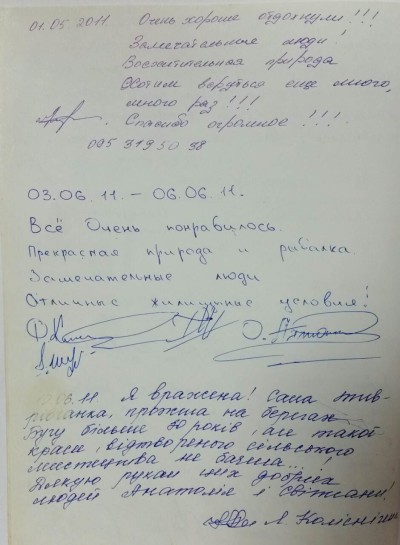 01.05.2011 Очень хорошо отдохнули!!!
Замечательные люди!
Восхитительная природа
Хотим вернуться еще много,
много раз!!!
Спасибо огромное!!!
095 819 50 98
03.06.11. – 06.06.11.
Всё Очень понравилось.
Прекрасная природа и рыбалка
Замечательные люди
Отличные жилищные условия!
06.11 Я вражена! Сама
прожила на берегах
Бугу більше років, але такої
краси, відтвореного сільського
мистецтва не бачила...!
Дякую рукам цих добрих
людей Анатолія і Світлани!
Л.